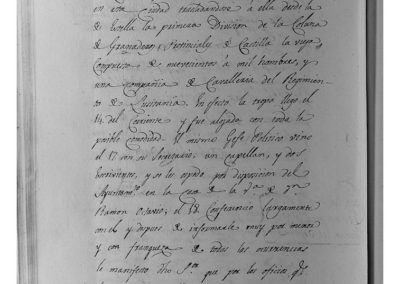 en esta Ciudad trasladandose á ella desde la
de Estella la primera Division de la Colana
de Granaderos Provinciales de Castilla la vieja
Compuesto de novecientos á mil hombres, y
una compañia de Cavalleria del Regimien
to de Lusitania. En efecto la tropa llegó el
14 del Corriente y fue alojada con toda la
posible comodidad. El mismo Gefe Politico vino
el 17 con su Secretario, un Capellan, y dos
escrivientes, y se les ospedó por disposicion del
Ayuntamto en la Casa de la Vda de Dn
Ramon Octavio, el 18 Conferenció largamente
con el y despues de informarle muy por menor
y con franqueza de todas las ocurrencias
le manifestó dho Sor que por los oficios qe